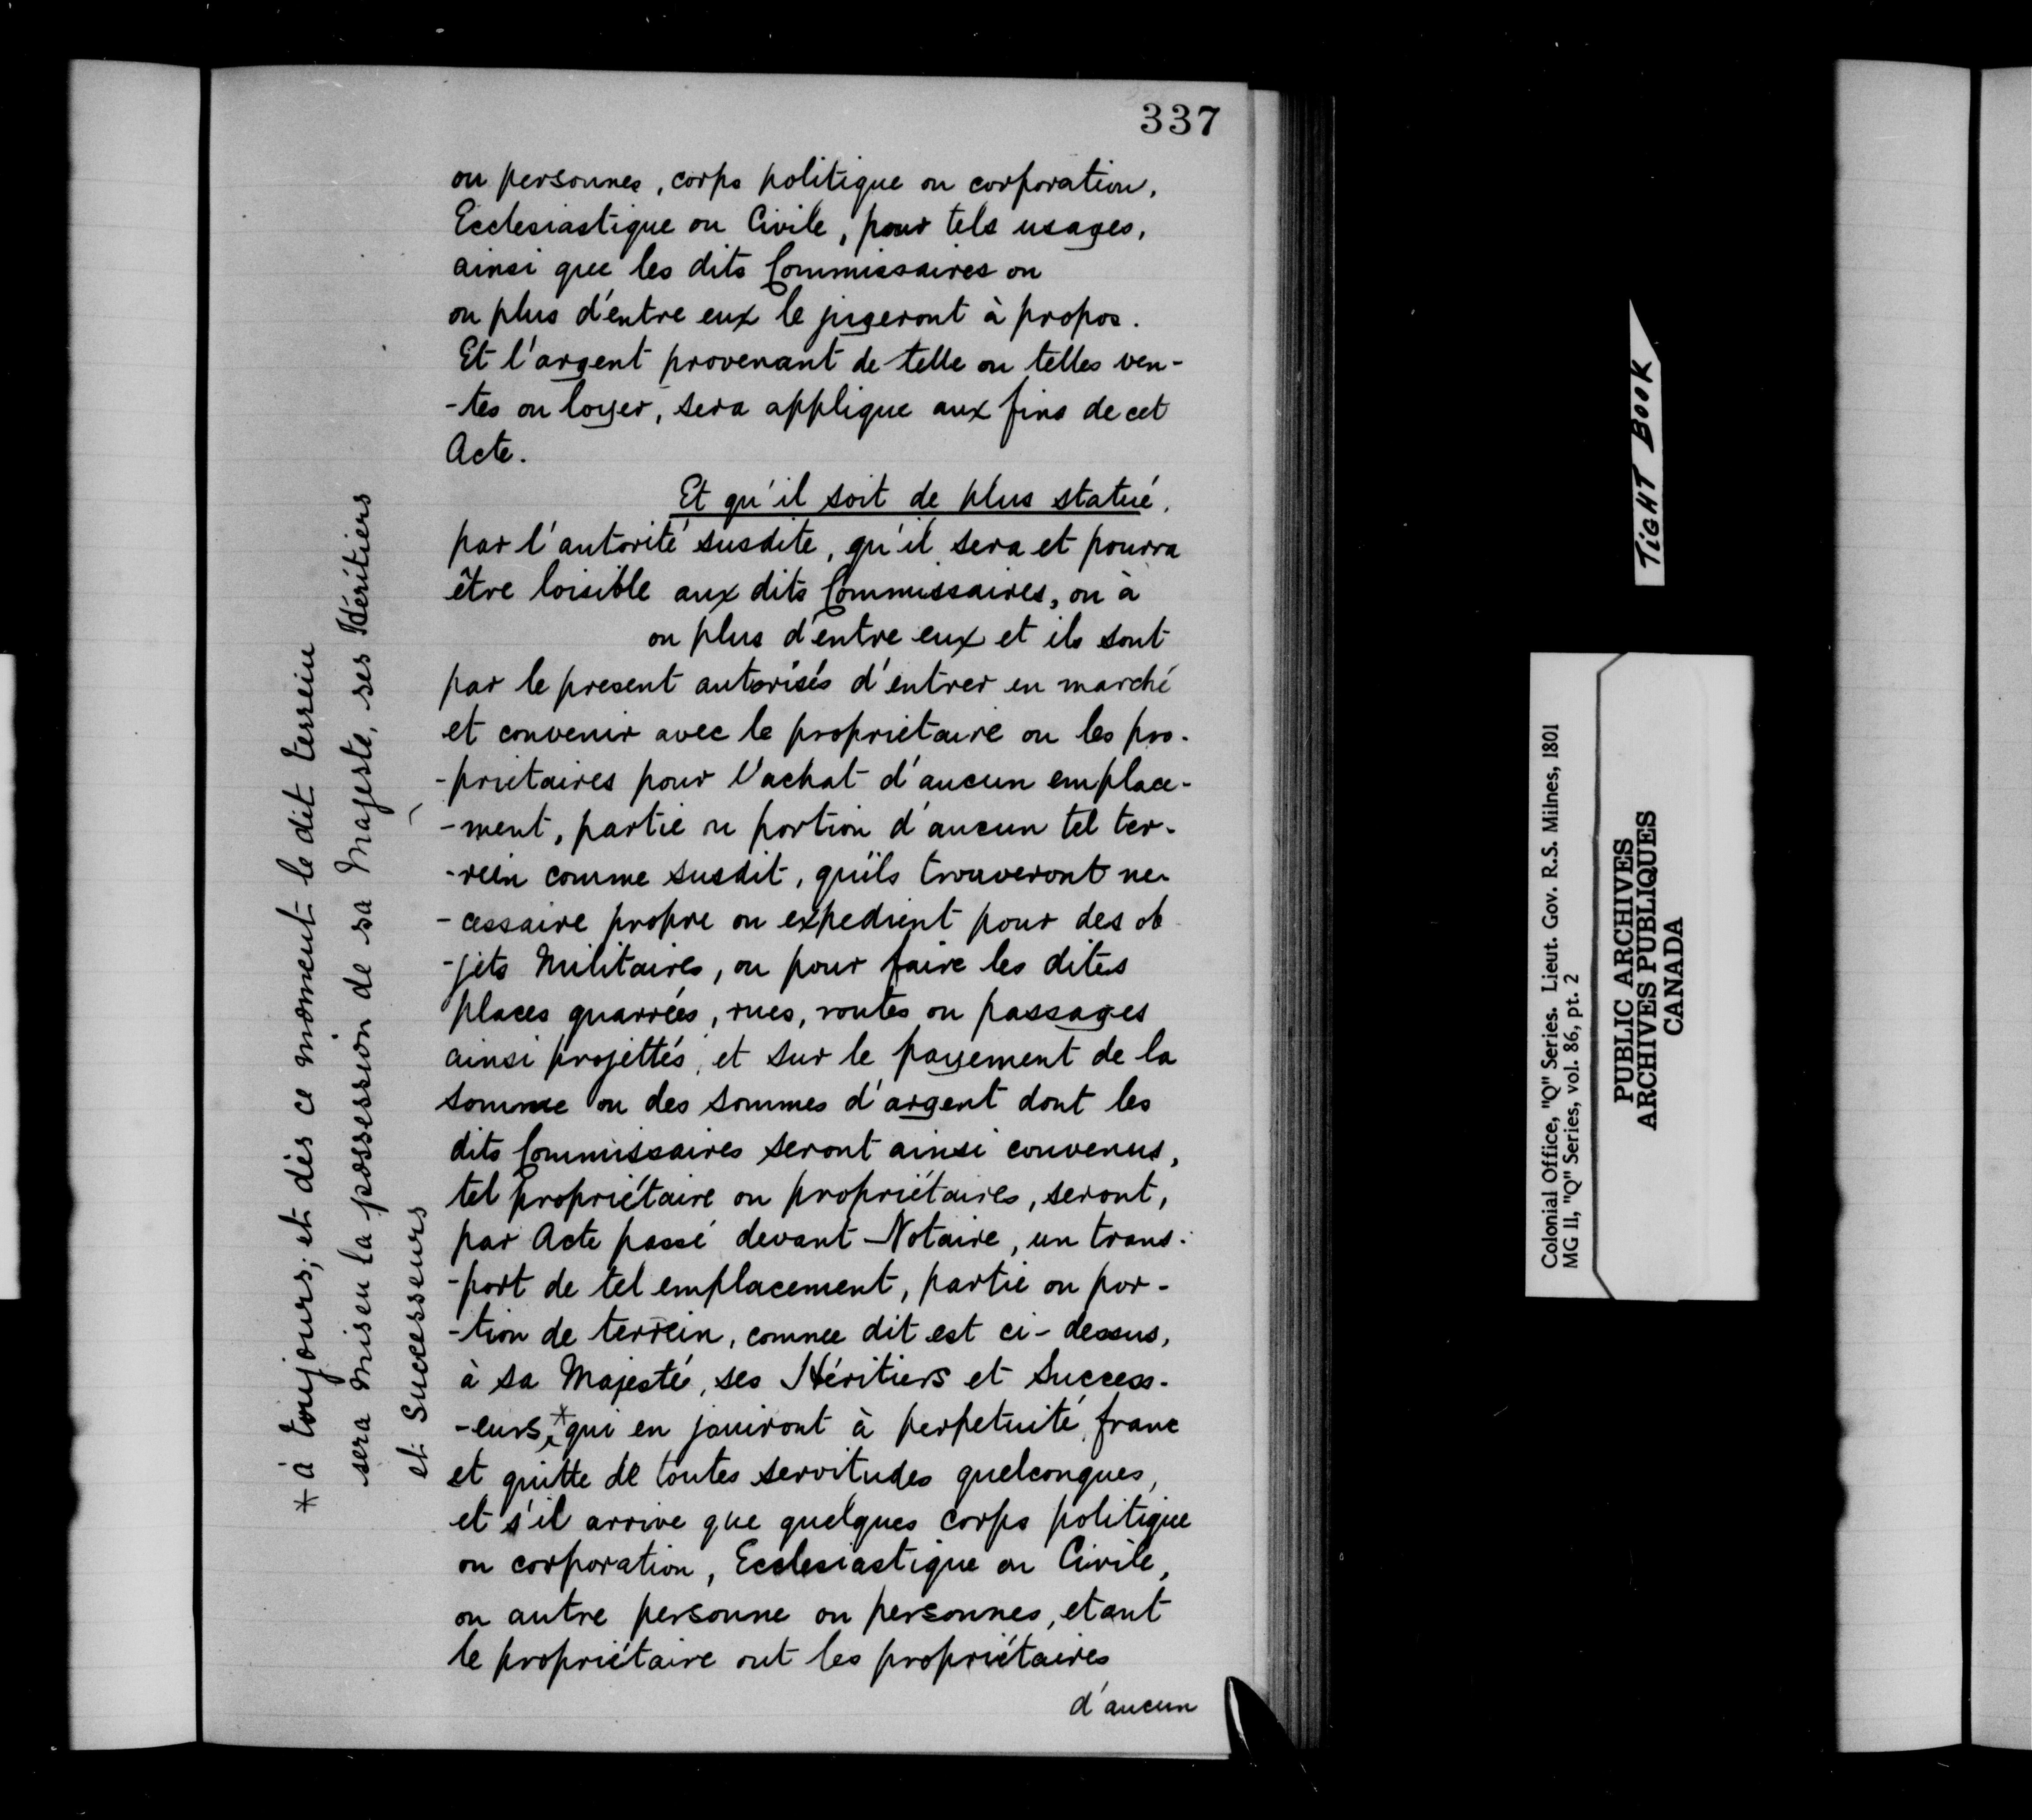 337
ou personnes, corps politique ou corporation,
Ecclesiastique ou Civile, pour tels usages,
ainsi que les dits Commissaires ou
ou plus d'entre eux le jugeront à propos.
Et l'argent provenant de telle ou telles ven-
-tes ou loyer, sera applique aux fins de cet
Acte.
Et qu'il soit de plus statué,
par l'autorité susdite, qu'il sera et pourra
être loisible aux dits Commissaires, ou à
ou plus d'entre eux et ils sont
par le present autorisés d'entrer en marché
et convenir avec le propriétaire ou les pro-
-priétaires pour l'achat d'aucun emplace-
-ment, partie ou portion d'aucun tel ter-
-rein comme susdit, qu'ils trouveront ne-
-cessaire propre ou expedient pour des ob
-jets Militaires, ou pour faire les dites
places quarrées, rues, routes ou passages
ainsi projettés, et sur le payement de la
somme ou des sommes d'argent dont les
dits Commissaires seront ainsi convenus,
tel propriétaire ou propriétaires, seront,
par Acte passé devant Notaire, un trans-
-port de tel emplacement, partie ou por-
-tion de terrein, comme dit est ci-dessus,
à sa Majesté, ses Héritiers et Success-
-eurs,* qui en jouiront à perpetuité, franc
et quitte de toutes servitudes quelconques,
et s'il arrive que quelques corps politique
ou corporation, Ecclesiastique ou Civile,
ou autre personne ou personnes, etant
le propriétaire out les propriétaires
d'aucun
* à toujours; et dès ce moment le dit terrein
sera mis en la possession de sa Majeste, ses Héritiers
et Successeurs
TIGHT BOOK
Colonial Office, "Q" Series. Lieut. Gov. R.S. Milnes, 1801
MG 11, "Q" Series, vol. 86, pt. 2
PUBLIC ARCHIVES
ARCHIVES PUBLIQUES
CANADA